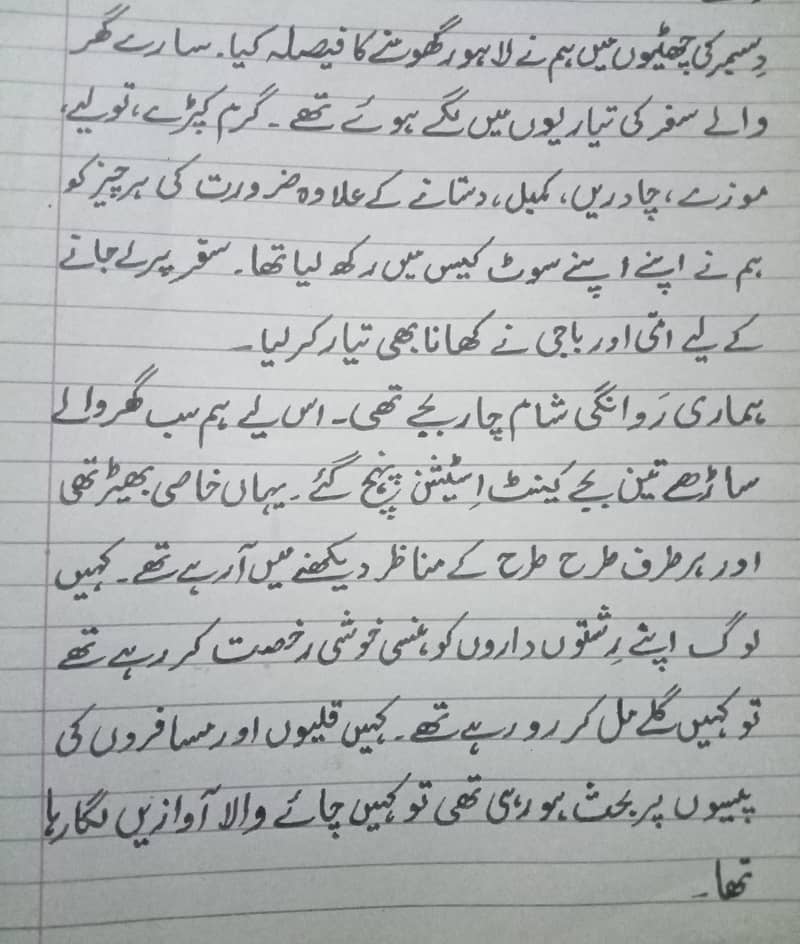 دِسمبر کی چھٹیوں میں ہم نے لاہور گھومنے کا فیصلہ کیا۔ سارے گھر
والے سفر کی تیاریوں میں لگے ہوئے تھے۔ گرم کپڑے، تولیے،
موزے، چادریں، کمبل، دستانے کے علاوہ ضرورت کی ہر چیز کو
ہم نے اپنے اپنے سوٹ کیس میں رکھ لیا تھا۔ سفر پر لے جانے
کے لیے امّی اور باجی نے کھانا بھی تیار کر لیا۔
ہماری رَوانگی شام چار بجے تھی۔ اس لیے ہم سب گھر والے
ساڑھے تین بجے کینٹ اِسٹیشن پہنچ گئے۔ یہاں خاصی بھیڑ تھی
اور ہر طرف طرح طرح کے مناظر دیکھنے میں آ رہے تھے۔ کہیں
لوگ اپنے رِشتوں داروں کو ہنسی خوشی رخصت کر رہے تھے
تو کہیں گلے مل کر رو رہے تھے۔ کہیں قلیوں اور مسافروں کی
پیسوں پر بحث ہو رہی تھی تو کہیں چائے والا آوازیں لگا رہا
تھا۔